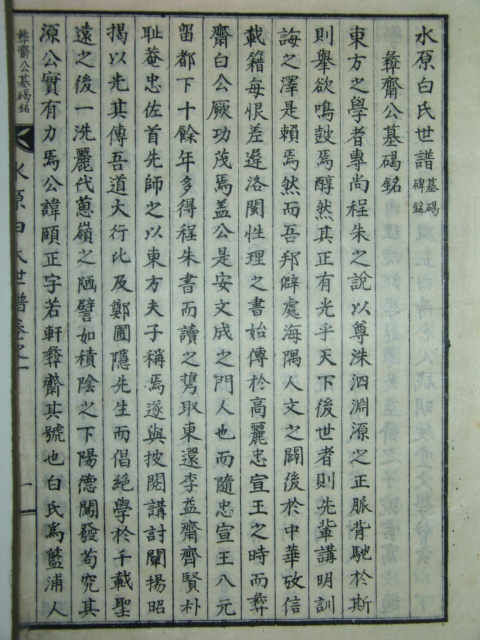 水原白氏世譜 墓碣 碑銘
彝齋公墓碣銘
東方之學者專尚程朱之說以尊洙泗淵源之正脈背馳於斯
則擧欲鳴鼓焉醇然其正有光乎天下後世者則先輩講明訓
誨之澤是賴焉然而吾邦僻處海隅人文之闢後於中華攷信
載籍每恨差遲洛閩性理之書始傳於高麗忠宣王之時而彝
齋白公厥功茂焉盖公是安文成之門人也而隨忠宣王入元
留都下十餘年多得程朱書而讀之携取東還李益齋齊賢朴
耻菴忠佐首先師之以東方夫子稱焉遂與披閱講討闡揚昭
揭以先其傳吾道大行比及鄭圃隱先生而倡絕學於千載聖
遠之後一洗麗代蔥嶺之陋譬如積陰之下陽德闖發苟究其
源公實有力焉公諱頤正字若軒彝齋其號也白氏爲藍浦人
彝齋公墓碣銘
水原白氏世譜卷之一
一